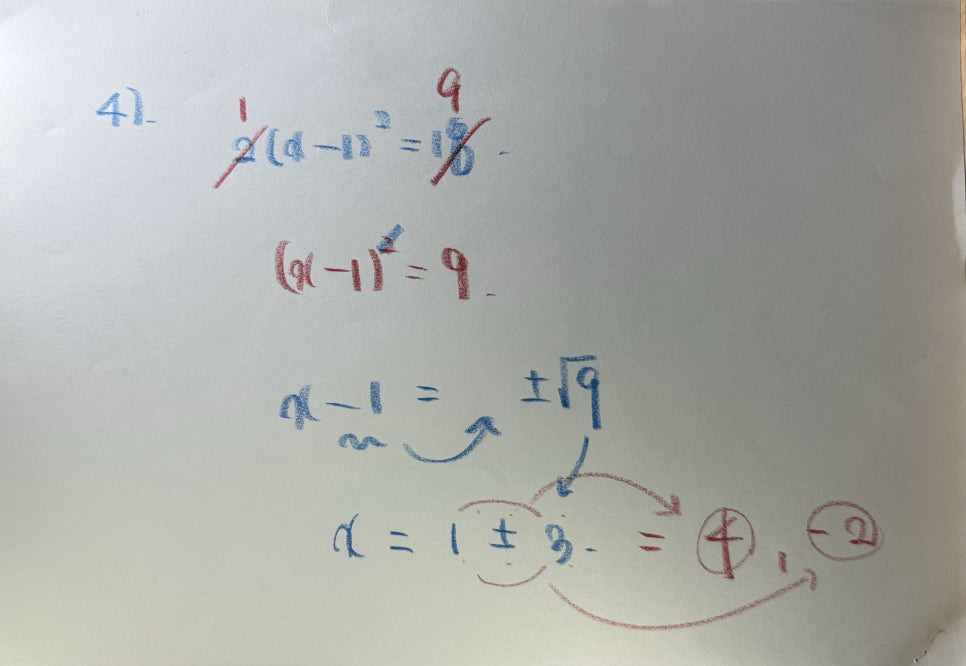 4). 2(x-1)² = 18. 1 9
(x-1)² = 9.
x-1 = ±√9
x = 1 ± 3. = 4, -2